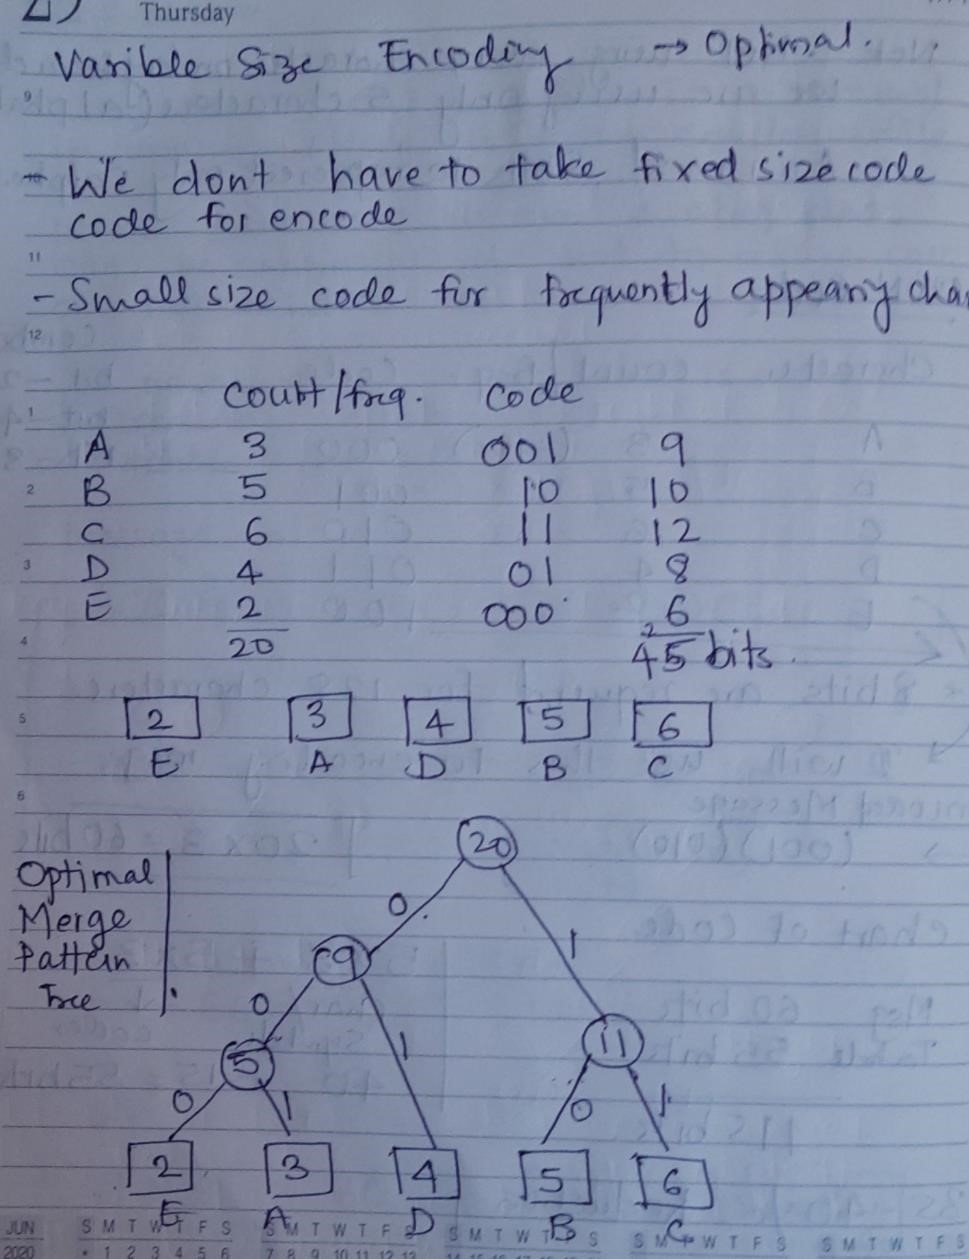 Thursday
Varible Size Encoding → Optimal.
9
- We dont have to take fixed size code
code for encode
11
- Small size code for frequently appearing cha
12
Count/freq. Code
1
A 3 001 9
2 B 5 10 10
C 6 11 12
3 D 4 01 8
E 2 000 6
4 20 2 45 bits.
5 2 3 4 5 6
E A D B C
6
20
Optimal
0
Merge
1
Pattern 9
Tree 0
1
5 11
0 1 0 1
2 3 4 5 6
E A D B C
JUN S M T W T F S S M T W T F S S M T W T F S S M T W T F S S M T W T F S
2020 1 2 3 4 5 6 7 8 9 10 11 12 13